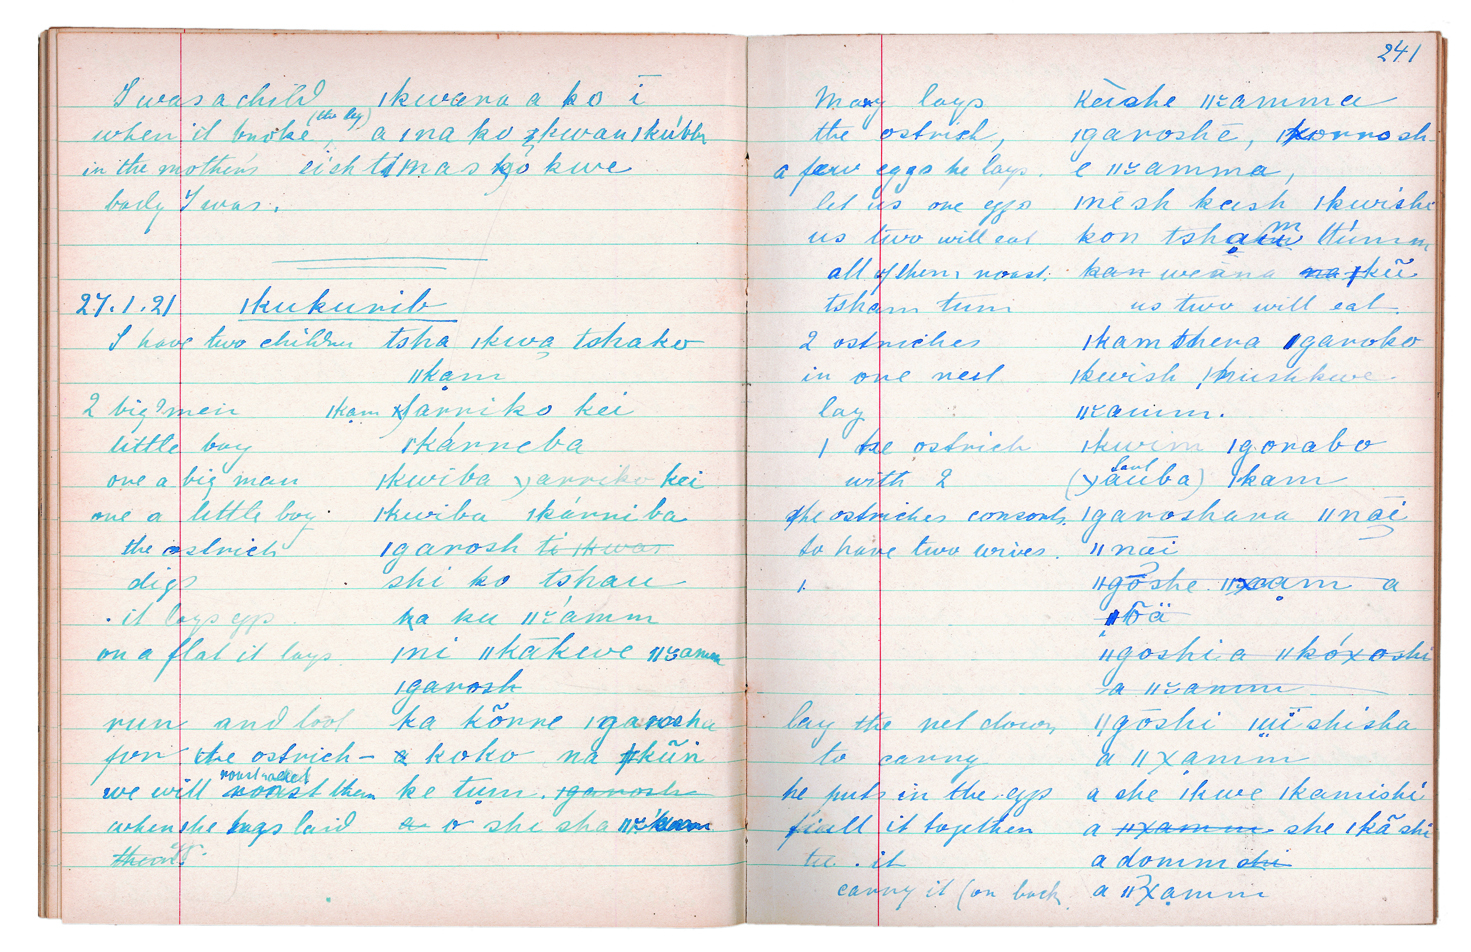 I was a child ǀkwana a ko ī
when it broke (the leg), a ǀna ko ǂkwan ǀkúbb
in the mother's eish tǀmas kó kwe
body I was.
27.1.21 ǀkukurib
I have two children tsha ǀkwa tshako
ǁkam
2 big men ǀkam ɣarriko kei
little boy ǀkárneba
one a big man ǀkwiba ɣarriko kei
one a little boy ǀkwiba ǀkárniba
the ostrich ǀgarosh ti ǀkwas
digs shi ko tshau
it lays eggs ka ku ǁɤámm
on a flat it lays ǀni ǁkākwe ǁɤamm
ǀgarosh
run and look ka kõrre ǀgarosha
for the ostrich – a koko na ǂkũn
we will roast them ke tum. ǀgarosh
when she has laid a o shi sha
241
Many lays Kēishe ǁɤamma
the ostrich, ǀgaroshē, ǀkorrosh-
a few eggs he lays. e ǁɤamma,
let us one eggs ǀnēsh kash ǀkwishi
us two will eat kon tsham ttúmm
all of them, roast. kan weāna na ǂkũ
tsham tum us two will eat
2 ostriches ǀkamthera ǀgaroko
in one nest ǀkwish ǀhushkwe
lay ǁɤamm.
1 he ostrich ǀkwim ǀgorabo
with 2 (ɣauba) ǀkam
the ostriches consorts. ǀgaroshara ǁnāi
to have two wives. ǁnāi
1. ǁgōshe. ǁxam a
ǁkā
ǁgoshi a ǁkóxoshi
a ǁɤamm
lay the net down, ǁgōshi ǀuī shisha
to carry a ǁχamm
he puts in the eggs a she ǀkwe ǀkamishi
fill it together a ǁχamm she ǀkāshi
tie it a dommshi
carry it (on back, a ǁχamm